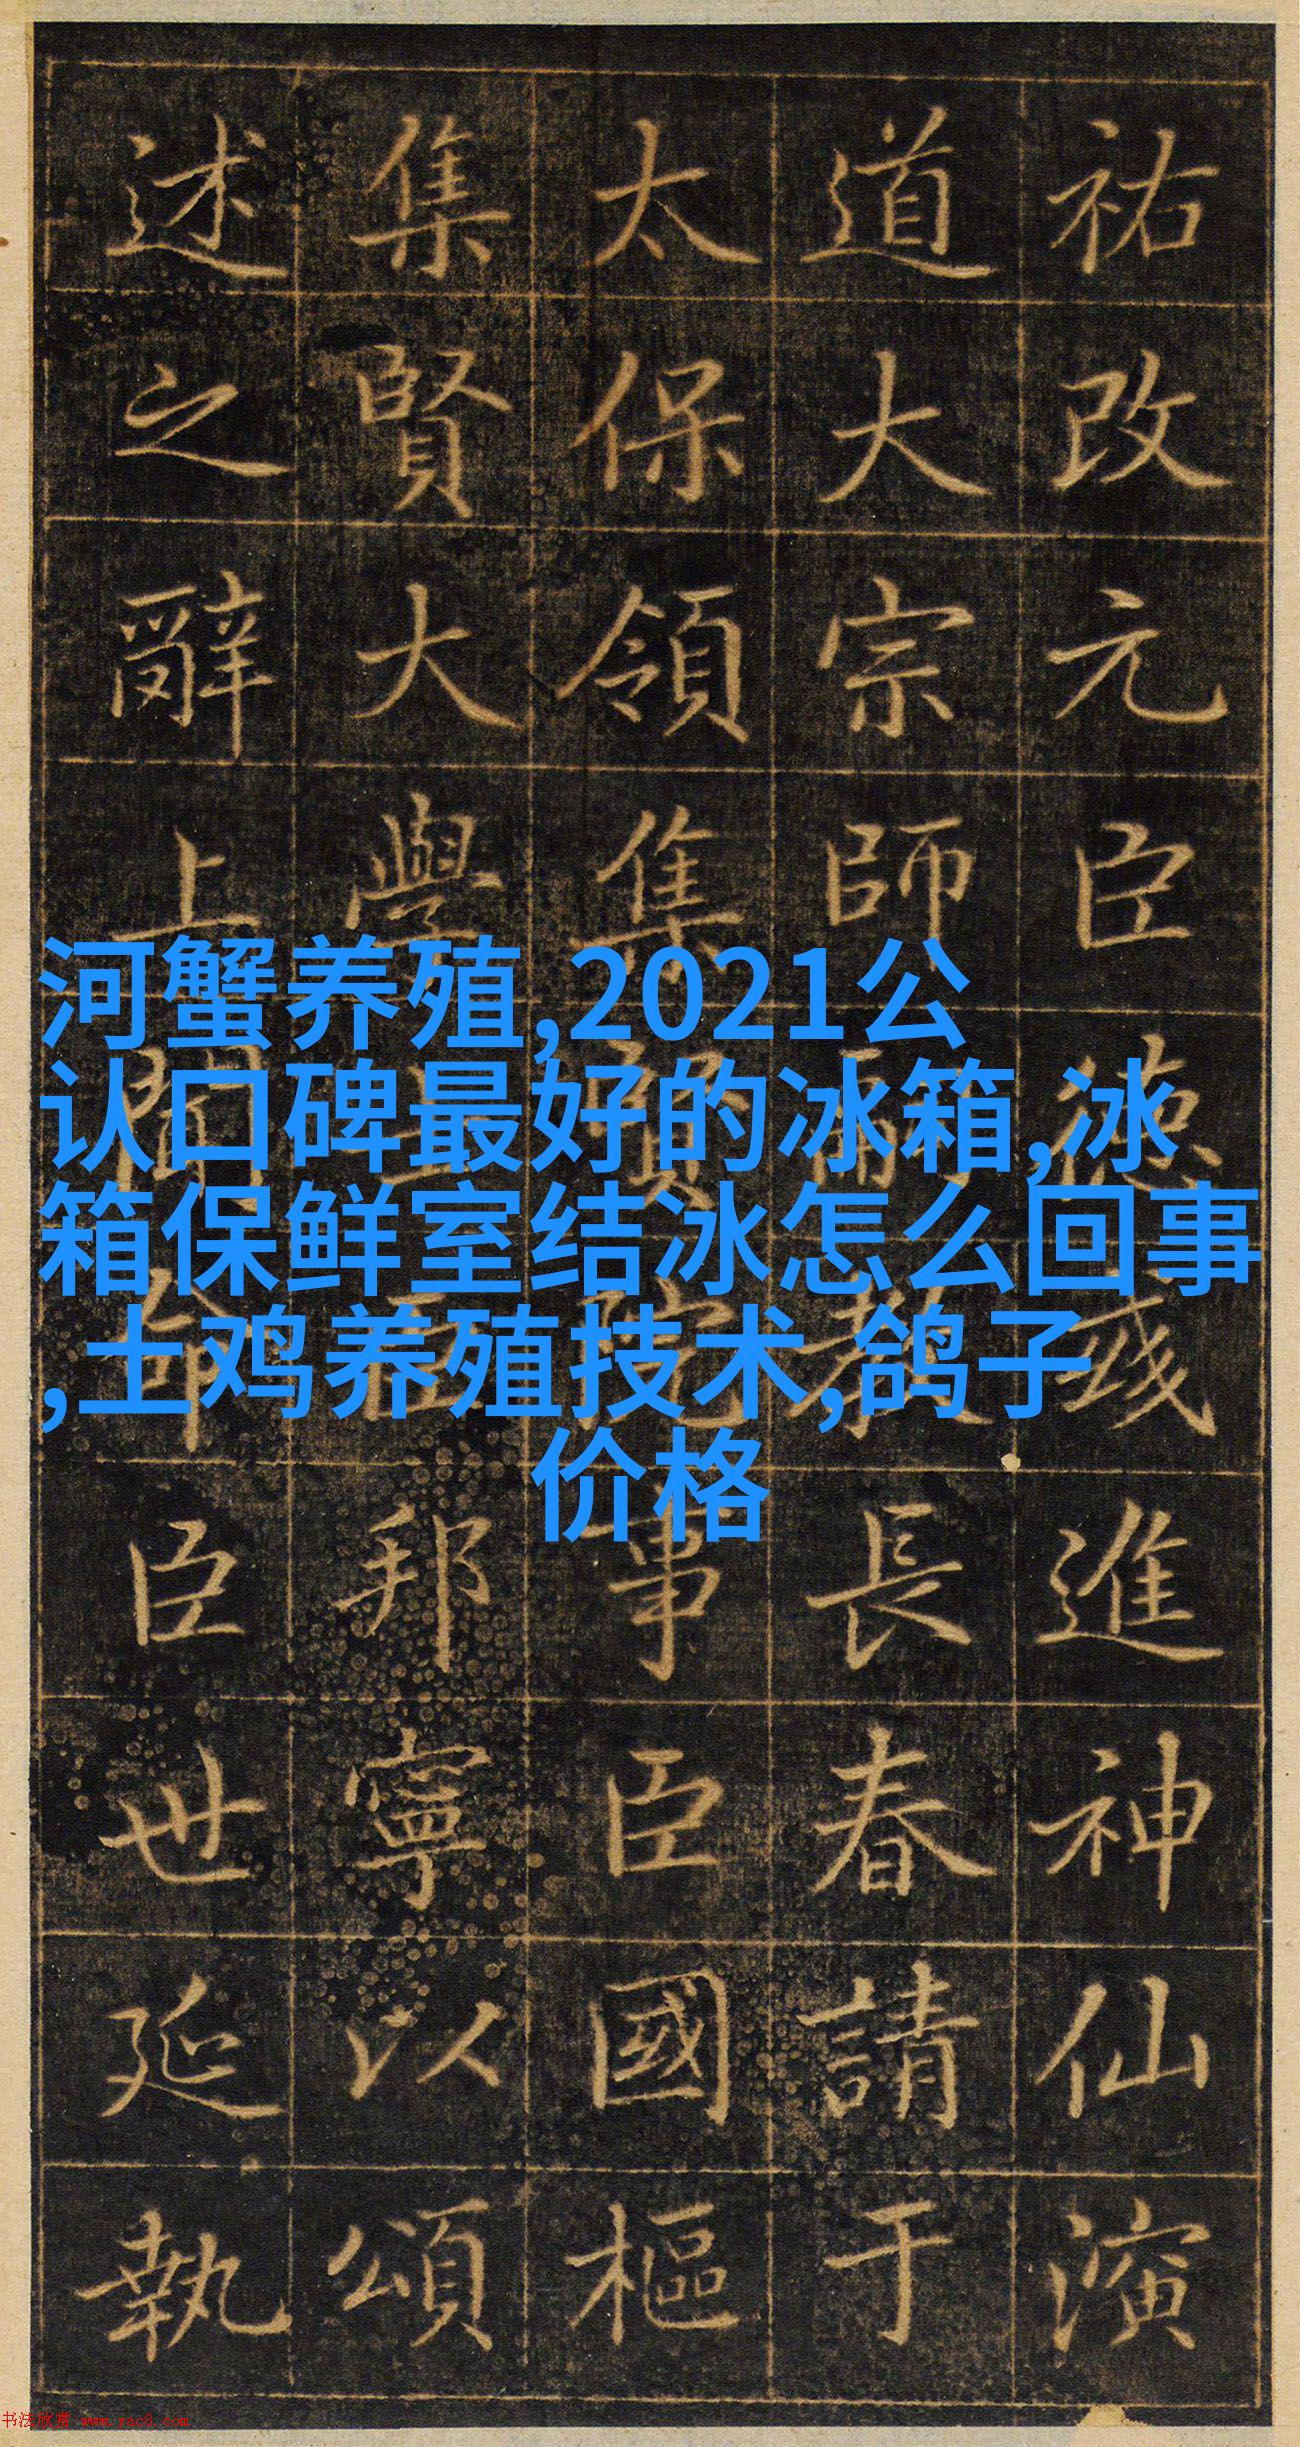 河蟹养殖,2021公
认口碑最好的冰箱,冰
箱保鲜室结冰怎么回事
,土鸡养殖技术,鸽子
价格
祐改元臣德彧進神仙演
道大宗師教長春請于
太保領集賢院事臣國樞
集賢大學士臣邦寧以頌
述之辭上聞命臣世延執
书法欣赏 www.yac8.com